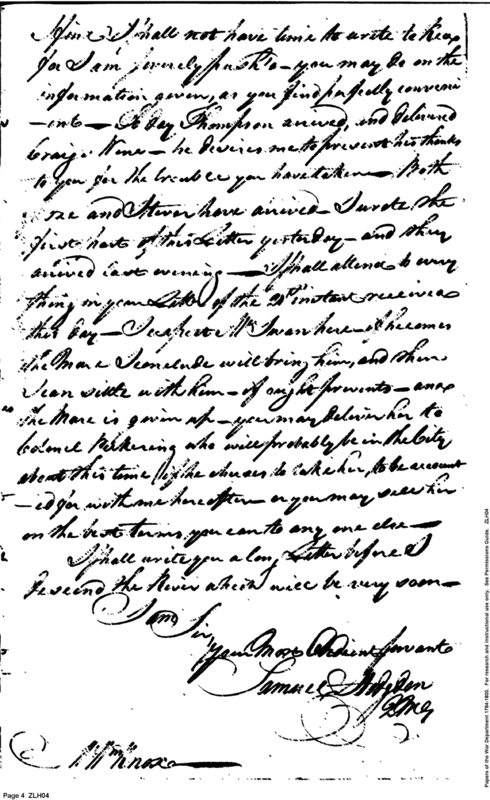 I shall not have time to write to Knox
for I am severely push'd - you may be on the
information given, as you find perfectly conveni
-ent - To day Thompson arrived, and delivered
Craigs Wine - he desires me to present his thanks
to you for the trouble you have taken - Both
and Stever have arrived - I wrote the
first part of this Letter yesterday - and they
arrived last evening - I shall attend to every
thing in your Letter of the 20th instant received
this day - I expect Mr Swan here - if he comes
the Mare I conclude will bring him, and then
I can settle with him - if ought prevents - and
the Mare is given up - you may deliver her to
Colonel Pickering who will probably be in the City
about this time if he chuses to take her, to be account
-ed for with me hereafter - or you may sell her
on the best terms you can to any one else -
I shall write you a long Letter before I
descend the River which will be very soon -
I am Sir
Your Most Obedient Servant
Samuel Hodgdon
QMG
Wm Knox
Page 4 ZLH04
Papers of the War Department 1784-1800. For research and instructional use only. See Permissions Guide. ZLH04